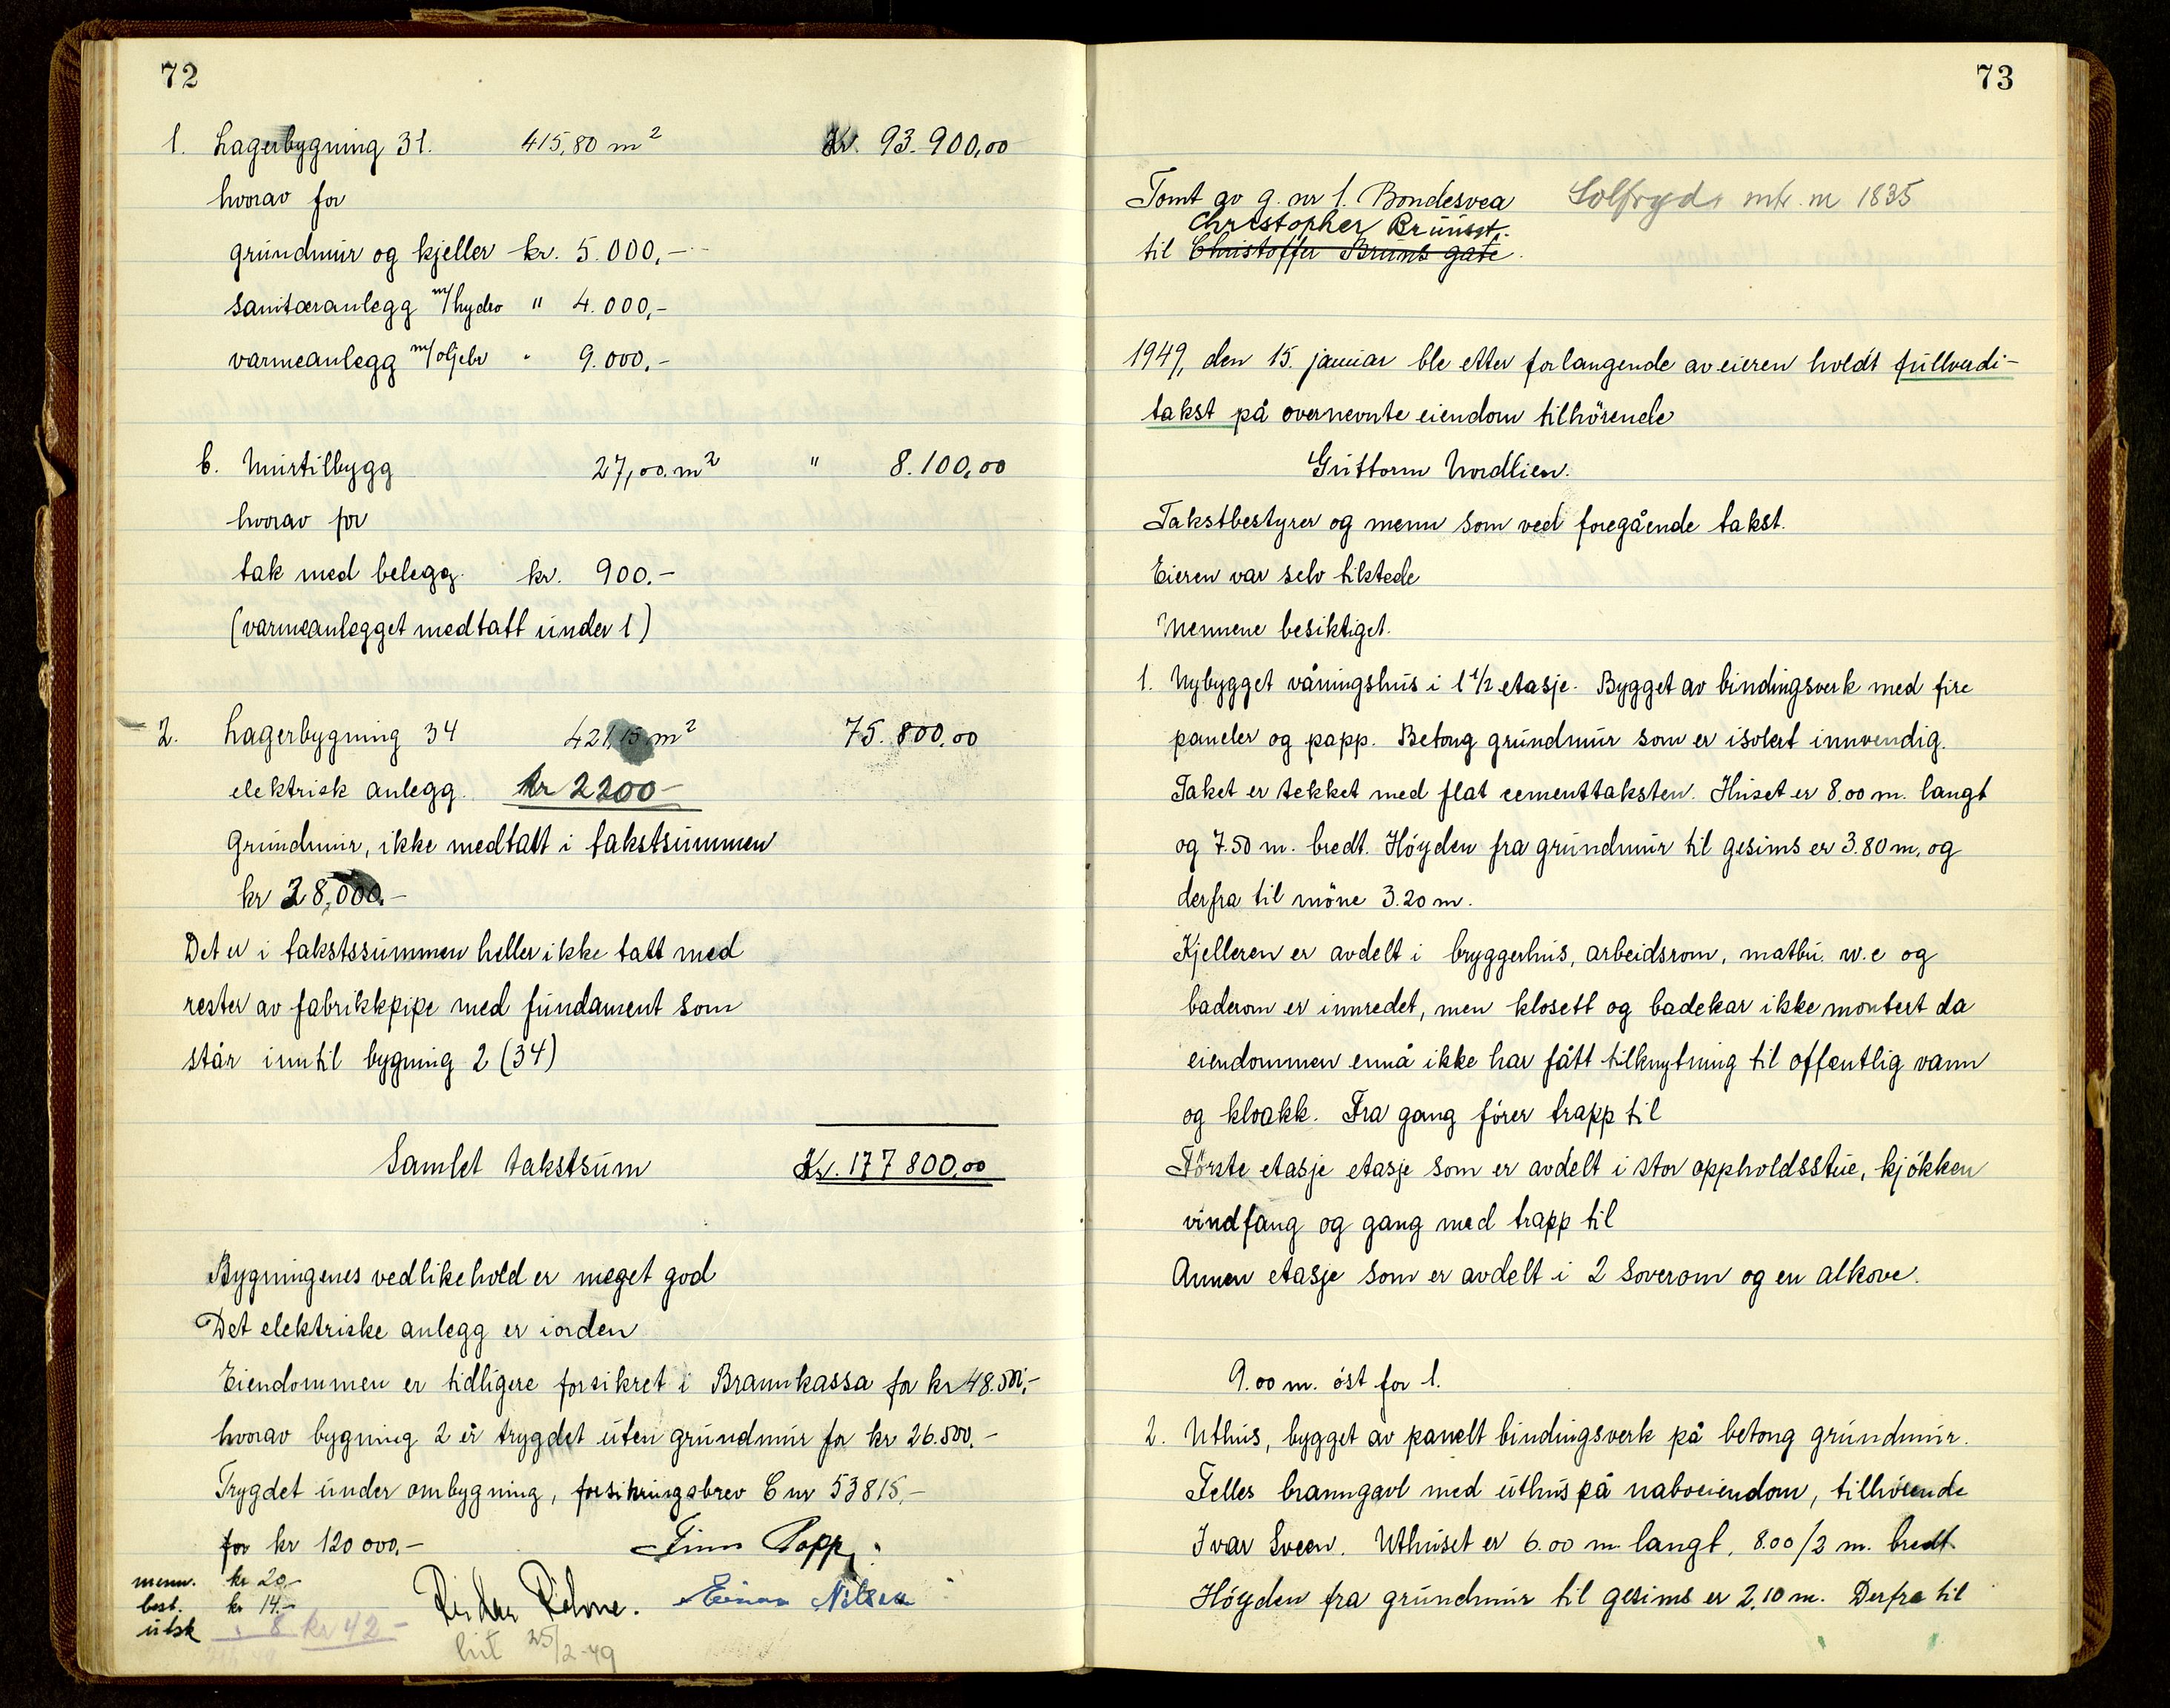 72
1. Lagerbygning 31. 415,80 m² Kr. 93.900,00
hvorav for
grunnmur og kjeller kr. 5.000,-
sanitæranlegg m/hydro " 4.000,-
varmeanlegg m/oljebr " 9.000,-
b. Murtilbygg 27,00 m² " 8.100,00
hvorav for
tak med belegg. kr. 900.-
(varmeanlegget medtatt under 1)
2. Lagerbygning 34 421,15 m² 75.800,00
elektrisk anlegg. kr 2200-
Grundmur, ikke medtatt i takstsummen
kr 28,000.-
Det er i takstssummen heller ikke tatt med
rester av fabrikkpipe med fundament som
står inntil bygning 2 (34)
Samlet takstsum Kr. 177 800,00
Bygningenes vedlikehold er meget god
Det elektriske anlegg er i orden
Eiendommen er tidligere forsikret i Brannkassa for kr 48.500,-
hvorav bygning 2 er trygdet uten grundmur for kr 26.500.-
Trygdet under ombygning, forsikringsbrev C nr 53815,-
for kr 120 000,- Finn Popp
menn. kr 20,-
best. kr 14.- Einar Nilsen
utsk " 8 kr 42-
25/2-49
73
Tomt av g. nr 1. Bondesvea Solfryds mtr. nr 1835
Christopher Bruunst.
til Christoffer Bruns gate.
1949, den 15. januar ble etter forlangende av eieren holdt fullverdi-
takst på overnevnte eiendom tilhörende
Guttorm Nordlien.
Takstbestyrer og menn som ved foregående takst.
Eieren var selv tilstede
Mennene besiktiget.
1. Nybygget våningshus i 1 1/2 etasje. Bygget av bindingsverk med fire
paneler og papp. Betong grundmur som er isolert innvendig.
Taket er tekket med flat cementtaksten. Huset er 8.00 m. langt
og 7.50 m. bredt. Höyden fra grundmur til gesims er 3.80 m, og
derfra til möne 3.20 m.
Kjelleren er avdelt i bryggerhus, arbeidsrom, matbu. w.c og
baderom er innredet, men klosett og badekar ikke montert da
eiendommen ennå ikke har fått tilknytning til offentlig vann
og kloakk. Fra gang förer trapp til
Förste etasje etasje som er avdelt i stor oppholdsstue, kjökken
vindfang og gang med trapp til
Annen etasje som er avdelt i 2 soverom og en alkove.
9.00 m. öst for 1.
2. Uthus, bygget av panelt bindingsverk på betong grundmur.
Felles branngavl med uthus på naboeiendom, tilhörende
Ivar Sveen. Uthuset er 6.00 m langt, 8.00/2 m. bredt.
Höyden fra grundmur til gesims er 2,10 m. Derfra til